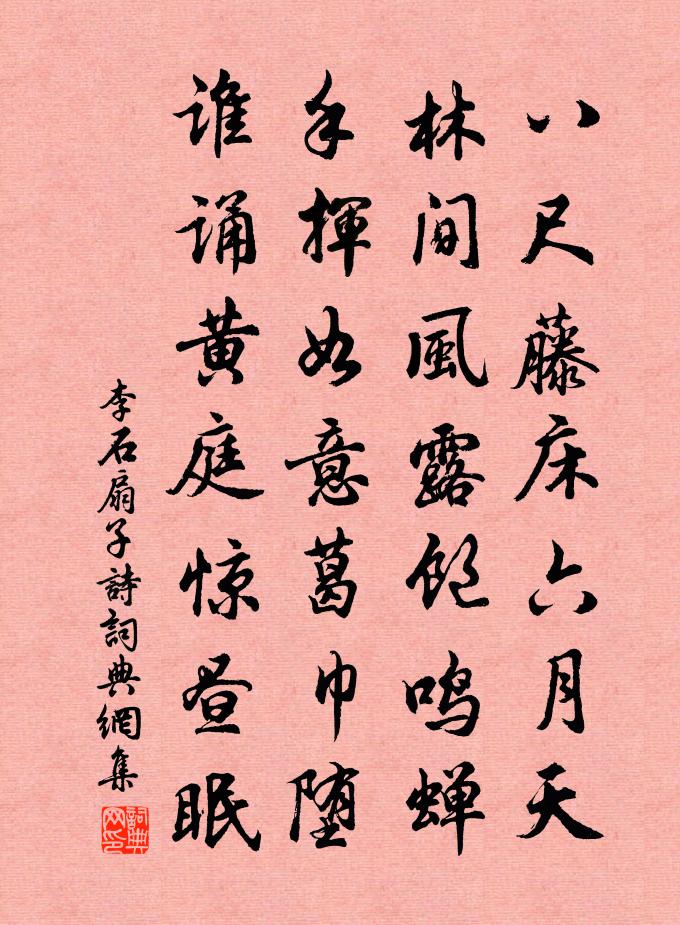 八尺藤床六月天
林间風露飽鳴蝉
手揮如意葛巾堕
谁诵黄庭惊昼眠
李石扇子詩詞典網集
詞典网印